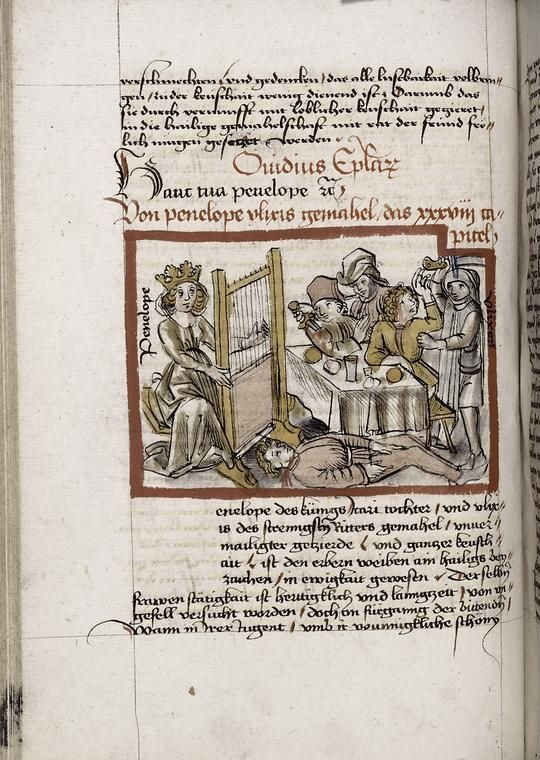 verschmechten / vnd gedencken / das alle lustbarkait volbrin=
gen / zu der keuschait wenig dienend ist / Darumb das
sie durch vernunfft mit loblicher keuschait gezieret /
in die hailige gemahelschafft mit rat der freund frö=
lich mugen gesetzet werden
Ouidius Eplarz
Hanc tua penelope
Von penelope vlixis gemahel / das xxxviij ca=
pitel
Penelope
vlixes
enelope des künigs Icari tochter / vnd vlix=
is des strenngsten Ritters gemahel / vnuer=
mailigter gezierde / vnd gantzer keusch=
ait / ist den erbern weiben ain hailigs
zaichen / in ewigkait gewesen / Der selben
frawen stätigkait ist hertigklich vnd lanngzeit / von
gesell versucht worden / doch on fürganng der bittenden /
Wann in Irer tugent / vmb ir wunnigkliche schöny